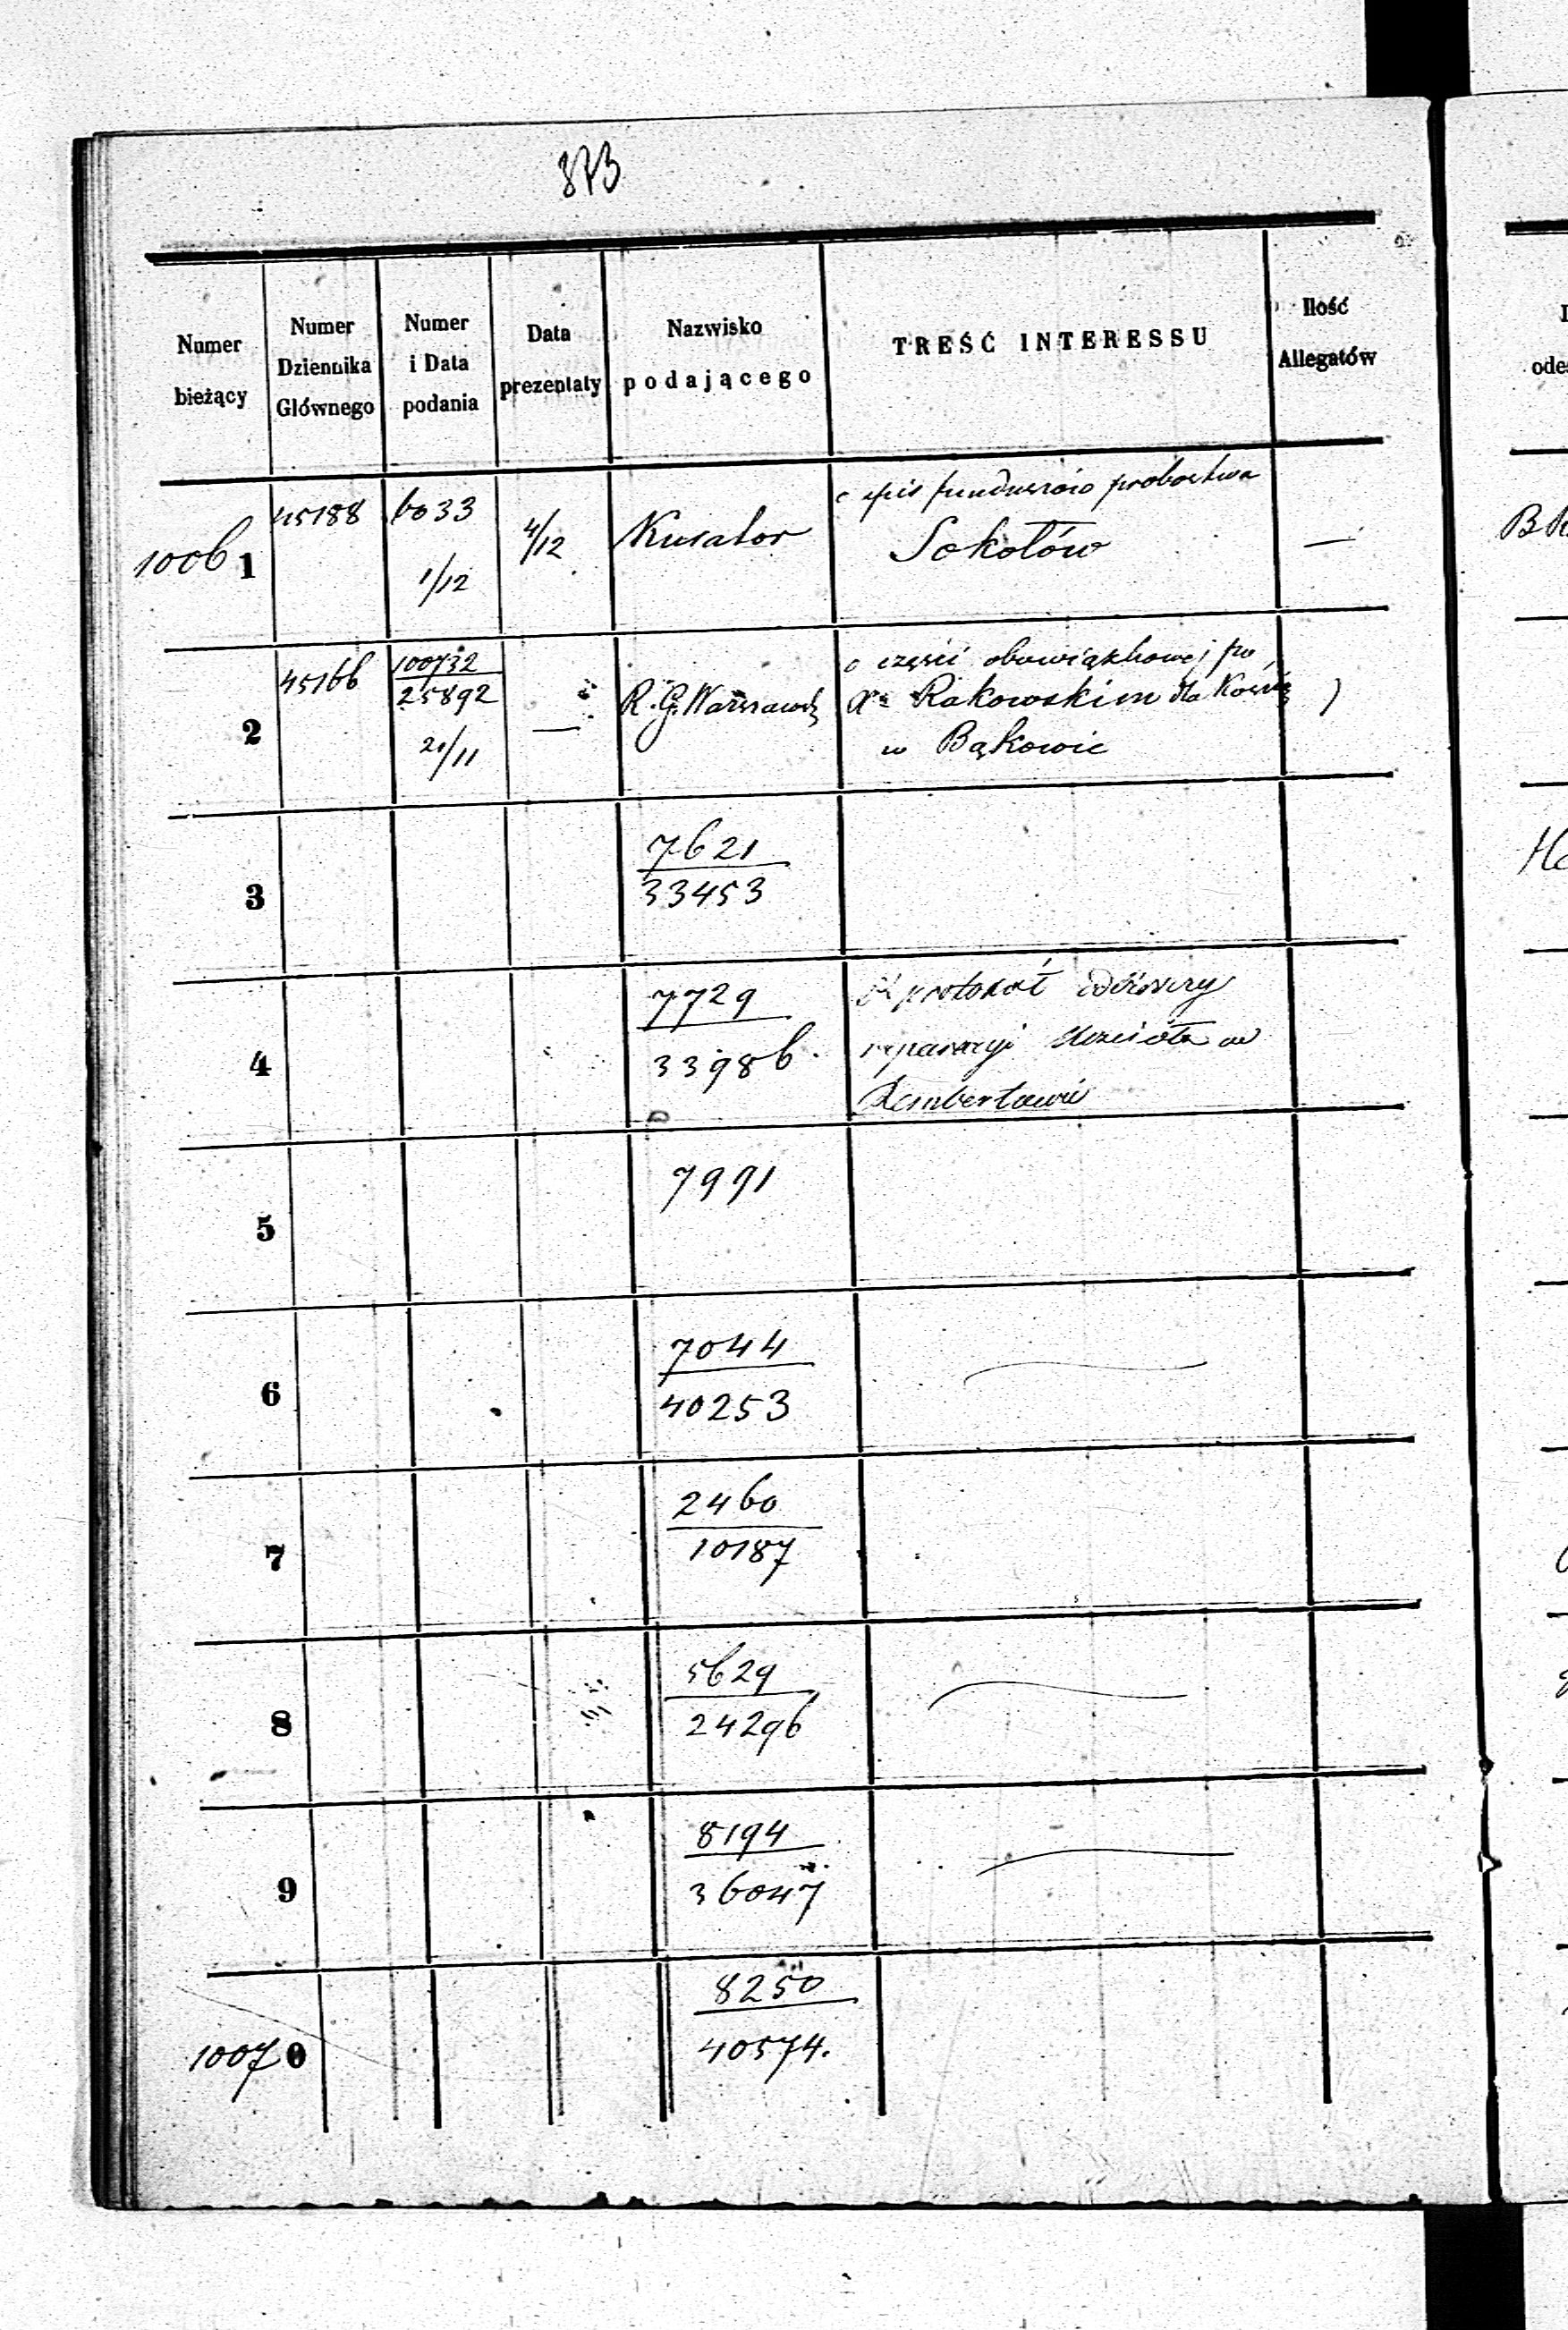 873
Numer bieżący
Numer Dziennika Głównego
Numer i Data podania
Data prezentaty
Nazwisko podającego
TREŚĆ INTERESSU
Ilość Allegatów
1006 1
45188
6033
1/12
4/12
Kurator
o spis funduszów probostwa
Sokołów
—
2
45166
100732
25892
21/11
—
R. G. Warszawsk
o części obowiązkowej po
Xs Rakowskim dla Kości
w Bąkowie
)
3
7621
33453
4
7729
33986.
protokół
reparacyi Kościoła w
Rembertowie
5
7991
6
7044
40253
7
2460
10187
8
5629
24296
9
8194
36047
1007 0
8250
40574.